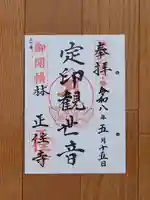 奉拝
令和八年五月十五日
定印観世音
御開横林
正住寺